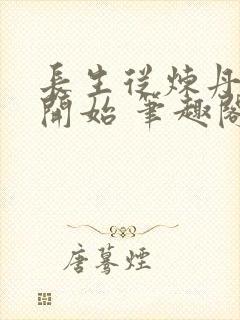 長生從煉丹
開始 筆趣閣
唐驀煙